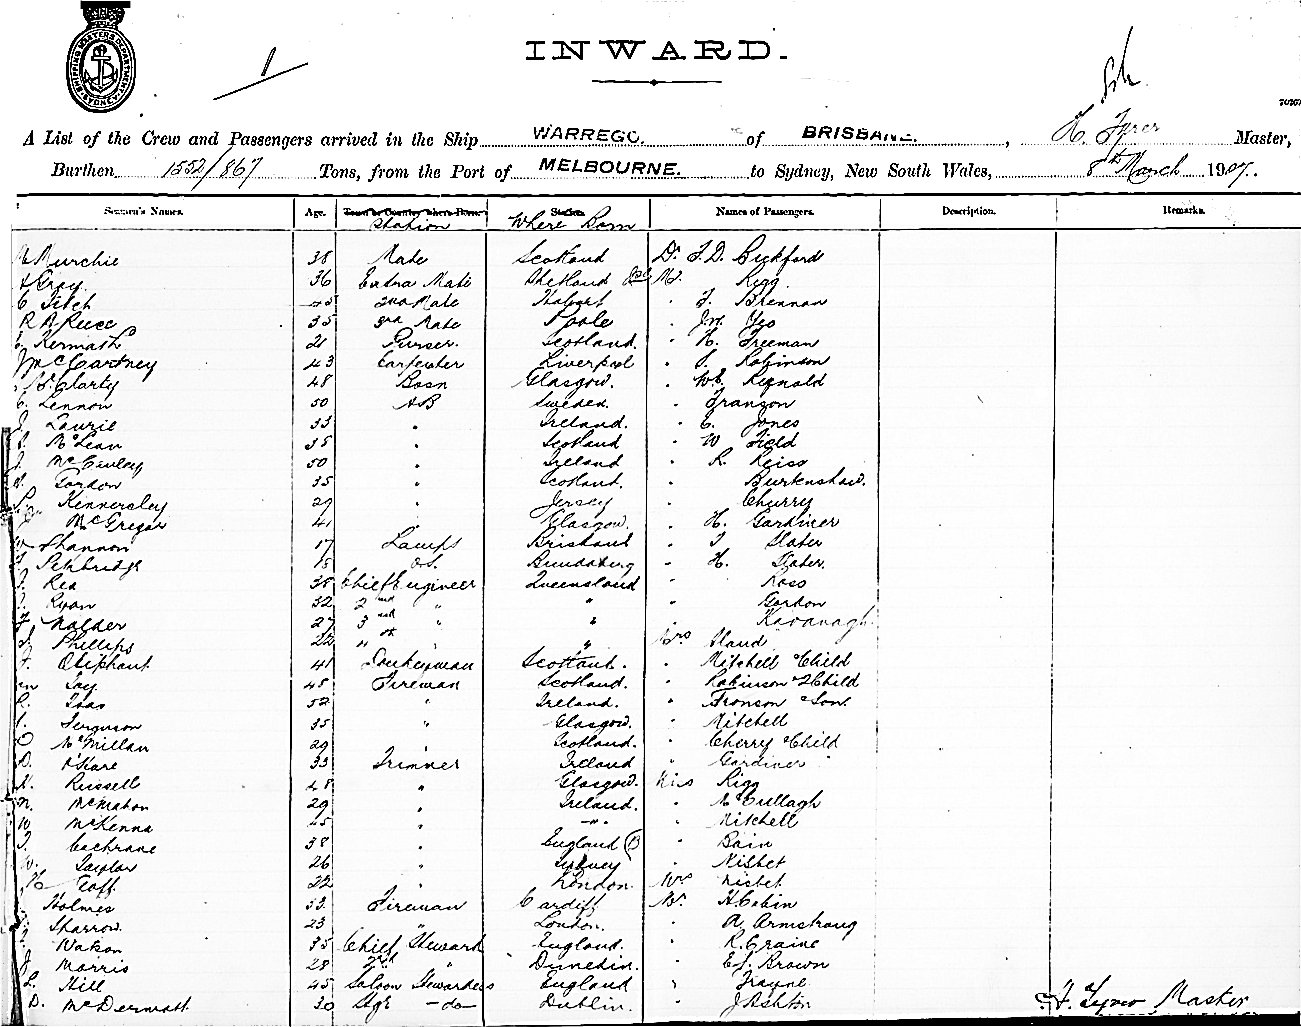 SHIPPING MASTERS DEPARTMENT SYDNEY
1
INWARD.
A List of the Crew and Passengers arrived in the Ship WARREGO. of BRISBANE. , H. Tyrer Master,
Burthen 1552/867 Tons, from the Port of MELBOURNE. to Sydney, New South Wales, 8th March 1907.
Seamen's Names. Age. Town or Country where Born. Station. Names of Passengers. Description. Remarks.
Station Where Born
Murchie 38 Mate Scotland Dr. F. D. Bickford
Gray. 36 Extra Mate Shetland Mr. Rigg.
C Fitch 2nd Mate Hobart " F. Brennan
R A Reece 35 3rd Mate Poole " Jn. Yeo
Kermath 21 Purser. Scotland. " H. Freeman
J McCartney 43 Carpenter Liverpool " Robinson
McClarty 48 Bosn Glasgow. " Wm. Reynold
C. Lennon 50 AB Sweden. " Franzon
J. Laurie 33 " Ireland. " C. Jones
McLean 38 " Scotland " W Field
J. McGinley 50 " Ireland " R. Reiss
Gordon 35 " Scotland. " Burkenshaw.
Kennersley 29 " Jersey " Churry
McGregor 41 " Glasgow. " H. Gardiner
W Shannon 17 Lamps Brisbane " J Slater
Pethbridge 18 O.S. Bundaberg " H. Slater.
Rea 38 Chief Engineer Queensland " Ross
Ryan 32 2nd " " " Gordon
Nalder 27 3rd " " " Kavanagh.
Phillips 22 4th " " Mrs Hand
F. Oliphant 41 Donkeyman Scotland. " Mitchell & Child
Wm Jay 48 Fireman Scotland. " Robinson & Child
52 " Ireland. " Fronson & Son.
Ferguson 35 " Glasgow. " Mitchell
D McMillan 29 " Scotland. " Cherry & Child
D. O'Hare 33 Trimmer Ireland " Gardiner
Russell 48 " Glasgow. Miss Rigg
McMahon 29 " Ireland. " McCullagh
W McKenna 45 " —"— " Mitchell
J. Cochrane 38 " England (B) " Bain
W. Taylor 26 " Sydney " Nisbet
H Goff. 22 " London. Mrs Nisbet
Holmes 32. Fireman Cardiff Mr. H Cobin
Sharrow. 23 " London. " A. Armstrong
Watson 35 Chief Steward England. " R. Graine
J Morris 28 2nd " Dunedin. " E J. Brown
L. Hill 45 Saloon Stewardess England " Frayne
D. McDermott 30 Stge —do— Dublin. " J Ashton
H. Tyrer Master